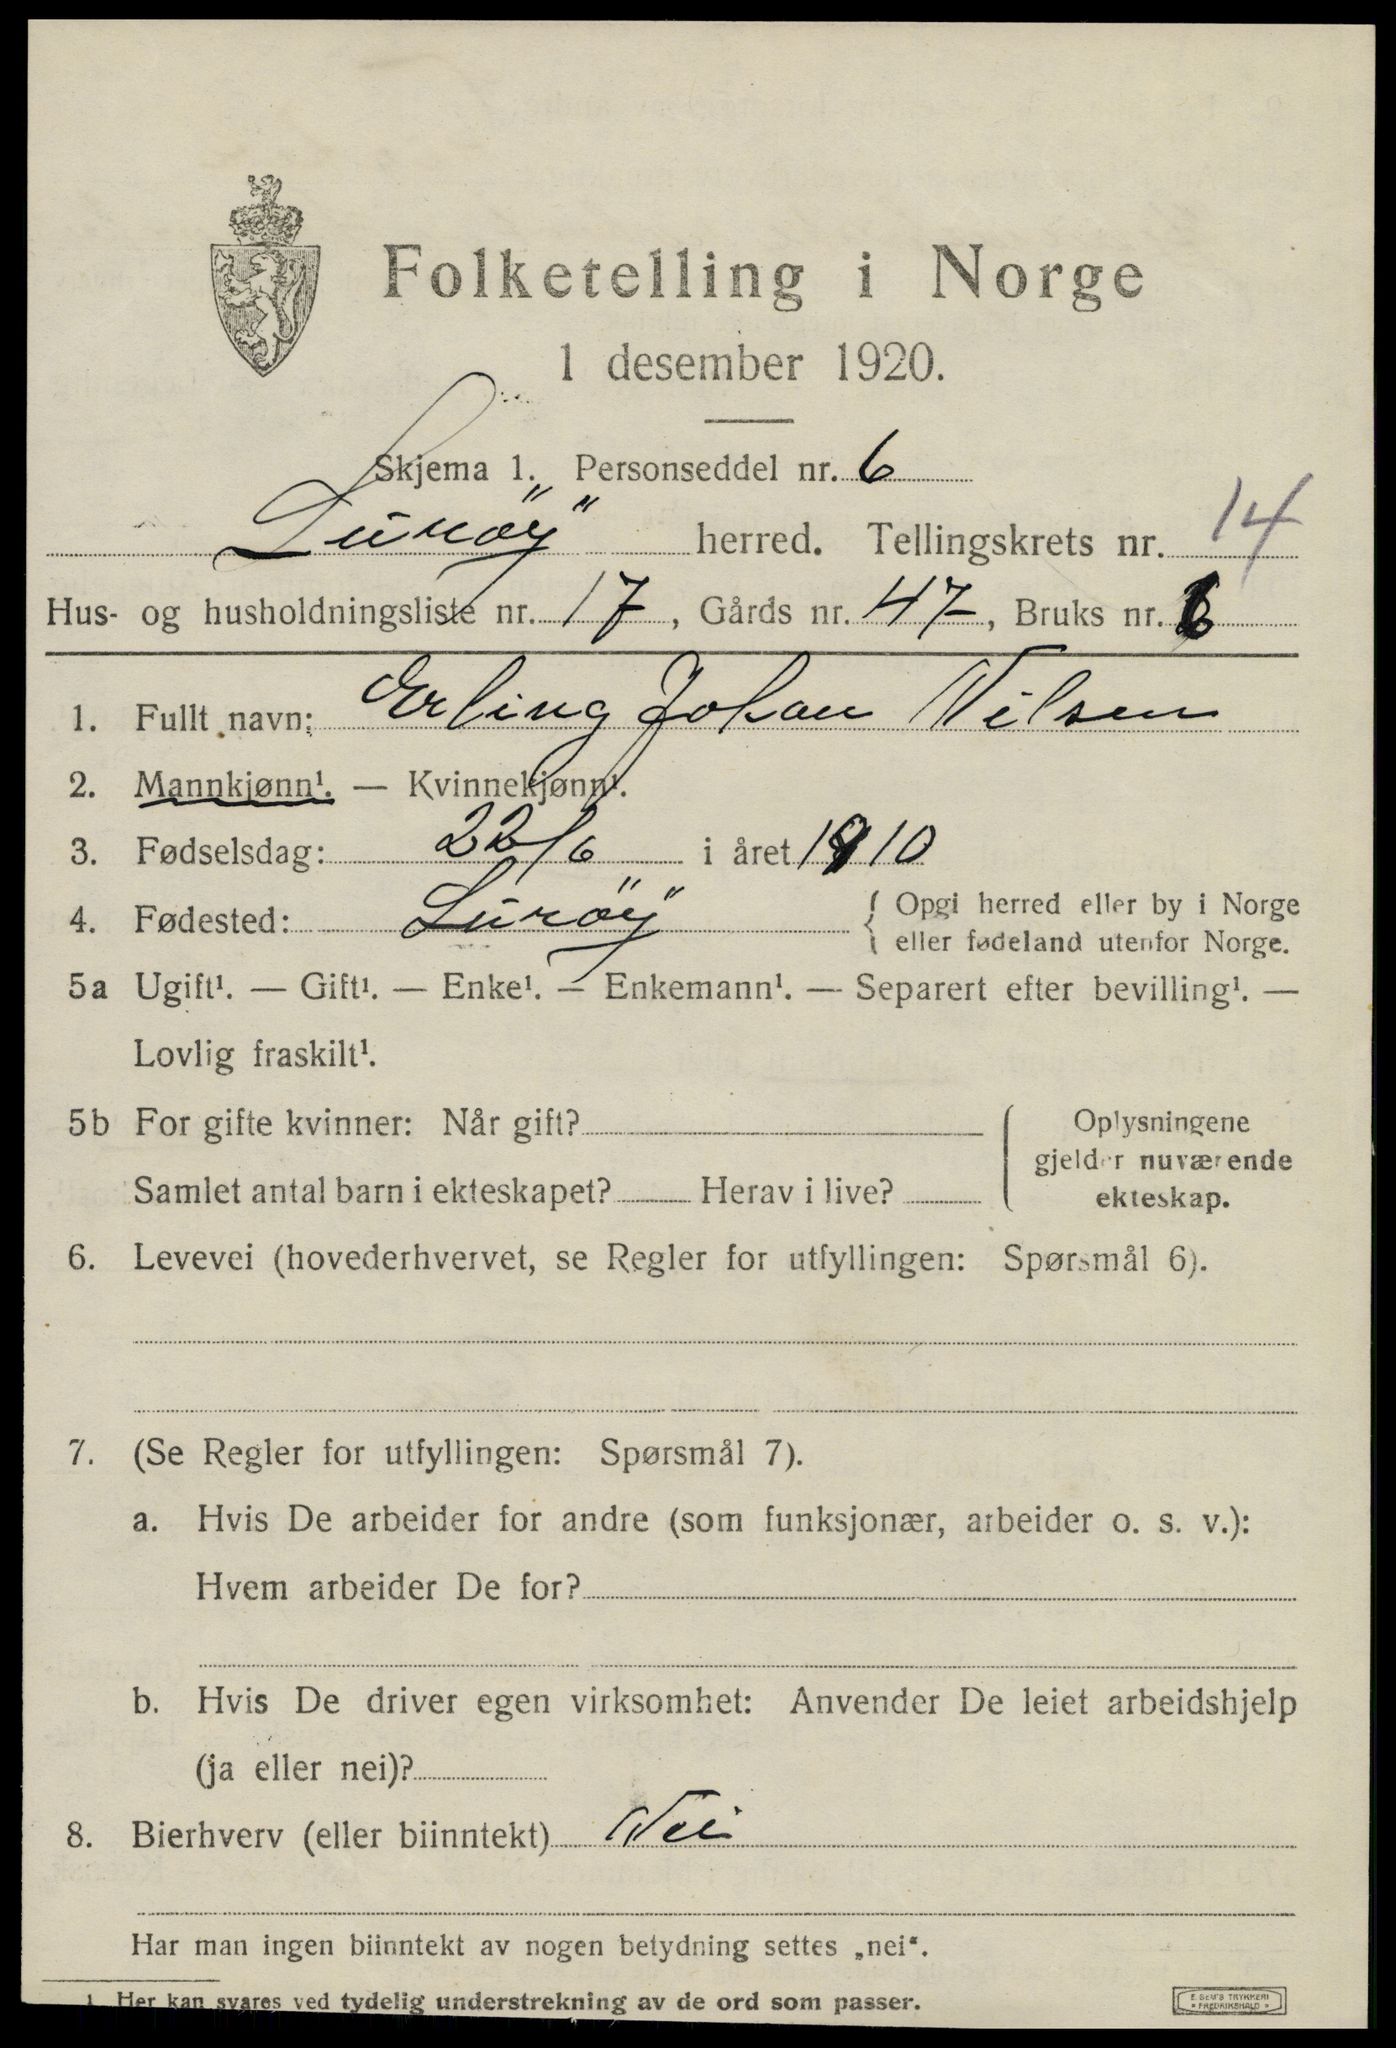 Folketelling i Norge
1 desember 1920.
Skjema 1. Personseddel nr. 6
Luröy herred. Tellingskrets nr. 14
Hus- og husholdningsliste nr. 17, Gårds nr. 47, Bruks nr. 6
1. Fullt navn: Erling Johan Nilsen
2. Mannkjønn¹. — Kvinnekjønn¹.
3. Fødselsdag: 22/6 i året 1910
4. Fødested: Luröy { Opgi herred eller by i Norge
eller fødeland utenfor Norge.
5a Ugift¹. — Gift¹. — Enke¹. — Enkemann¹. — Separert efter bevilling¹. —
Lovlig fraskilt¹.
5b For gifte kvinner: Når gift?
Samlet antal barn i ekteskapet? Herav i live?
Oplysningene
gjelder nuværende
ekteskap.
6. Levevei (hovederhvervet, se Regler for utfyllingen: Spørsmål 6).
7. (Se Regler for utfyllingen: Spørsmål 7).
a. Hvis De arbeider for andre (som funksjonær, arbeider o. s. v.):
Hvem arbeider De for?
b. Hvis De driver egen virksomhet: Anvender De leiet arbeidshjelp
(ja eller nei)?
8. Bierhverv (eller biinntekt) Nei
Har man ingen biinntekt av nogen betydning settes „nei“.
1 Her kan svares ved tydelig understrekning av de ord som passer.
E. SEM'S TRYKKERI
» FREDRIKSHALD »